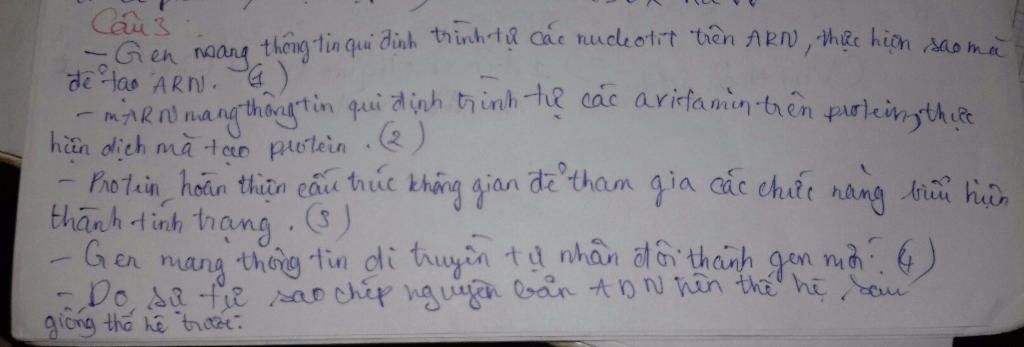 Câu 3:
- Gen mang thông tin qui định trình tự các nucleotit trên ARN, thực hiện sao mã
để tạo ARN. (1)
- mARN mang thông tin qui định trình tự các axitamin trên protein, thực
hiện dịch mã tạo protein. (2)
- Protein hoàn thiện cấu trúc không gian để tham gia các chức năng biểu hiện
thành tính trạng. (3)
- Gen mang thông tin di truyền tự nhân đôi thành gen mới. (4)
- Do sự tự sao chép nguyên bản ADN nên thế hệ sau
giống thế hệ trước.